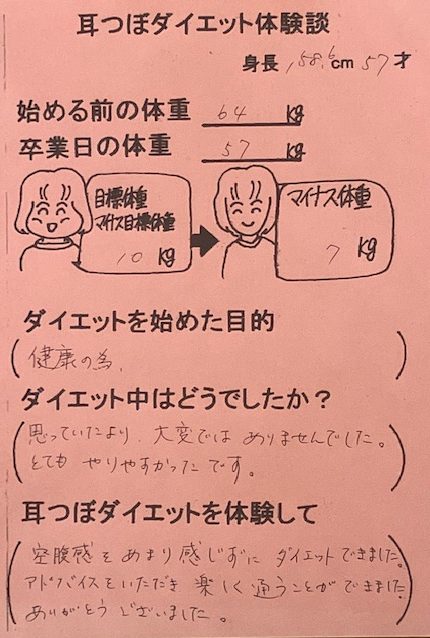 耳つぼダイエット体験談
身長 158.6cm 57才
始める前の体重 64 kg
卒業日の体重 57 kg
目標体重
マイナス目標体重
10 kg
マイナス体重
7 kg
ダイエットを始めた目的
(健康の為、)
ダイエット中はどうでしたか？
(思っていたより、大変では ありませんでした。
とても やりやすかった です。)
耳つぼダイエットを体験して
(空腹感を あまり 感じずに ダイエットできました。
アドバイスをいただき 楽しく 通うことが できました。
ありがとう ございました。)